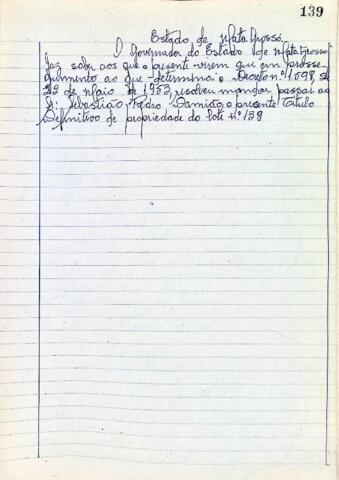 139
Estado de Mato Grosso
O Governador do Estado de Mato Grosso
faz saber aos que o presente virem que em prosse-
guimento ao que determina o Decreto n.º 1.598, de
22 de Maio de 1953, resolveu mandar passar ao
Sr. Sebastião Pedro Damião, o presente Titulo
Definitivo de propriedade do lote nº 139